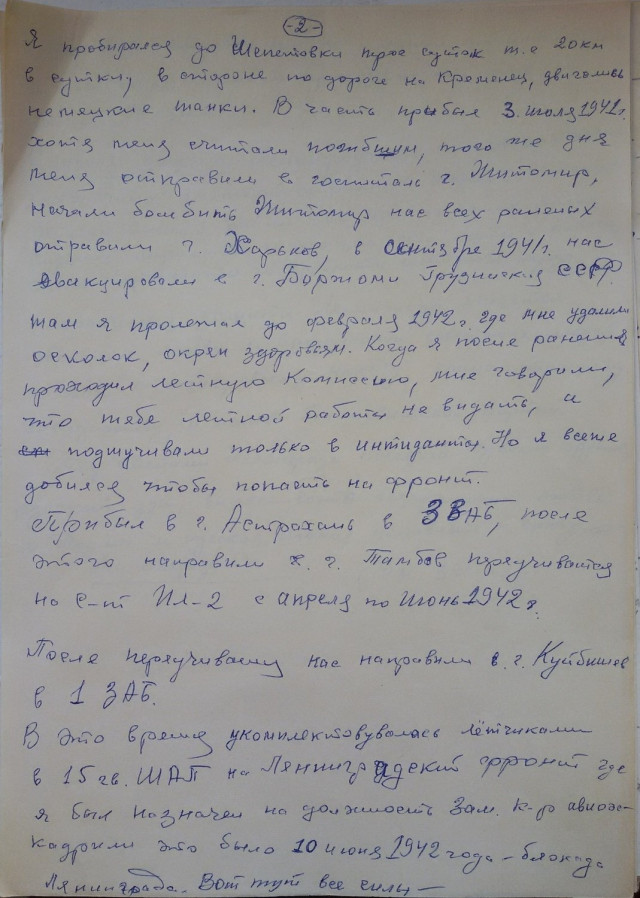 -2-
Я пробирался до Шепетовки трое суток т.е 20км
в сутки, в стороне по дороге на Кременец, двигались
немецкие танки. В часть прибыл 3. июля 1941г.
хотя меня считали погибшим, того же дня
меня отправили в госпиталь г. Житомир,
Начали бомбить Житомир нас всех раненых
отравили г. Харьков, в сентябре 1941г. нас
эвакуировали в г. Боржоми Грузинская ССР.
там я пролежал до февраля 1942г. где мне удалили
осколок, окреп здоровьям. Когда я после ранения
проходил летную Комиссию, мне говорили,
что тебе летной работы не видать, и
подшучивали только в интиданты. Но я всеже
добился чтобы попасть на фронт.
Прибыл в г. Астрахань в ЗВАБ, после
этого направили в. г. Тамбов переучиваться
на с-пт Ил-2 с апреля по июнь 1942г.
После переучиванию нас направили в. г. Куйбишев
в 1 ЗАБ.
В это время укомплектовувалась лётчиками
в 15 гв. ШАП на Ленинградский фронт где
я был назначен на должность Зам. к-р авиоэс-
кадрили это было 10 июня 1942 года - блокада
Лянинграда. Вот тут все силы -